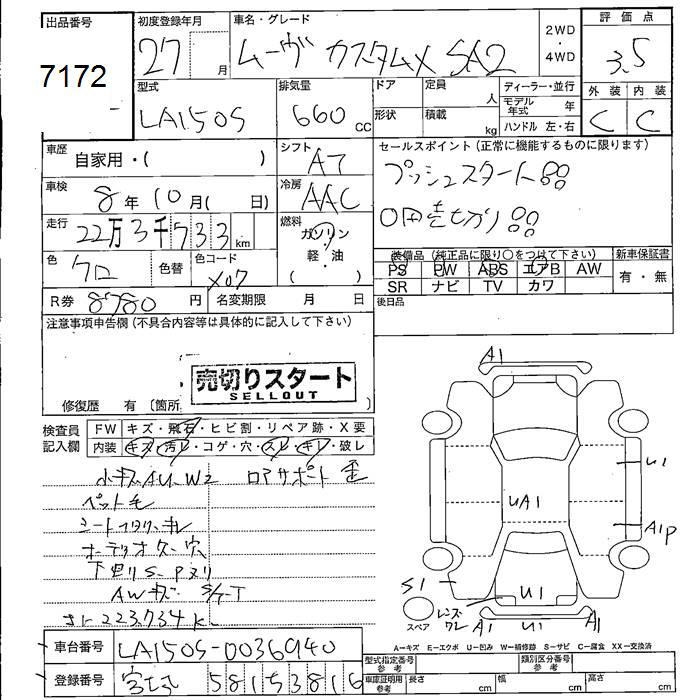 出品番号
7172
初度登録年月
27 月
車名・グレード
ムーヴ カスタムX SA2
2WD
・
4WD
評価点
3.5
型式
LA150S
排気量
660 cc
ドア
定員
人
形状
積載
kg
ディーラー・並行
モデル年式 年
ハンドル 左・右
外装 内装
C C
車歴
自家用・( )
シフト
AT
セールスポイント (正常に機能するものに限ります)
プッシュスタート
車検
8年10月( 日)
冷房
AAC
走行
22万3千733km
燃料
ガソリン
軽・油
( )
色
クロ
色替
色コード
X07
装備品 (純正品に限り○をつけて下さい)
新車保証書
PS PW ABS エアB AW
有・無
SR ナビ TV カワ
R券 8780円
名変期限 月 日
後日品
注意事項申告欄 (不具合内容等は具体的に記入して下さい)
売切りスタート
SELLOUT
修復歴 有 〔箇所
検査員
記入欄
FW キズ・飛石・ヒビ割・リペア跡・X要
内装 キズ・汚レ・コゲ・穴・スレ・キレ・破レ
小キズ AU.W2 ロアサポート
ペット毛
シートコゲ.キレ
オーディオ 穴
下回りS.Pヌリ
AWキズ S/T-T
223.734K
A1
U1
UA1
A1P
S1
U1
レンズワレ
スペア
A1
U1
A1
A─キズ E─エクボ U─凹み W─補修跡 S─サビ C─腐食 XX─交換済
車台番号
LA150S-0036940
型式指定番号
参考
類別区分番号
参考
登録番号
581 53816
車庫証明用
参考
長さ cm
幅 cm
高さ cm